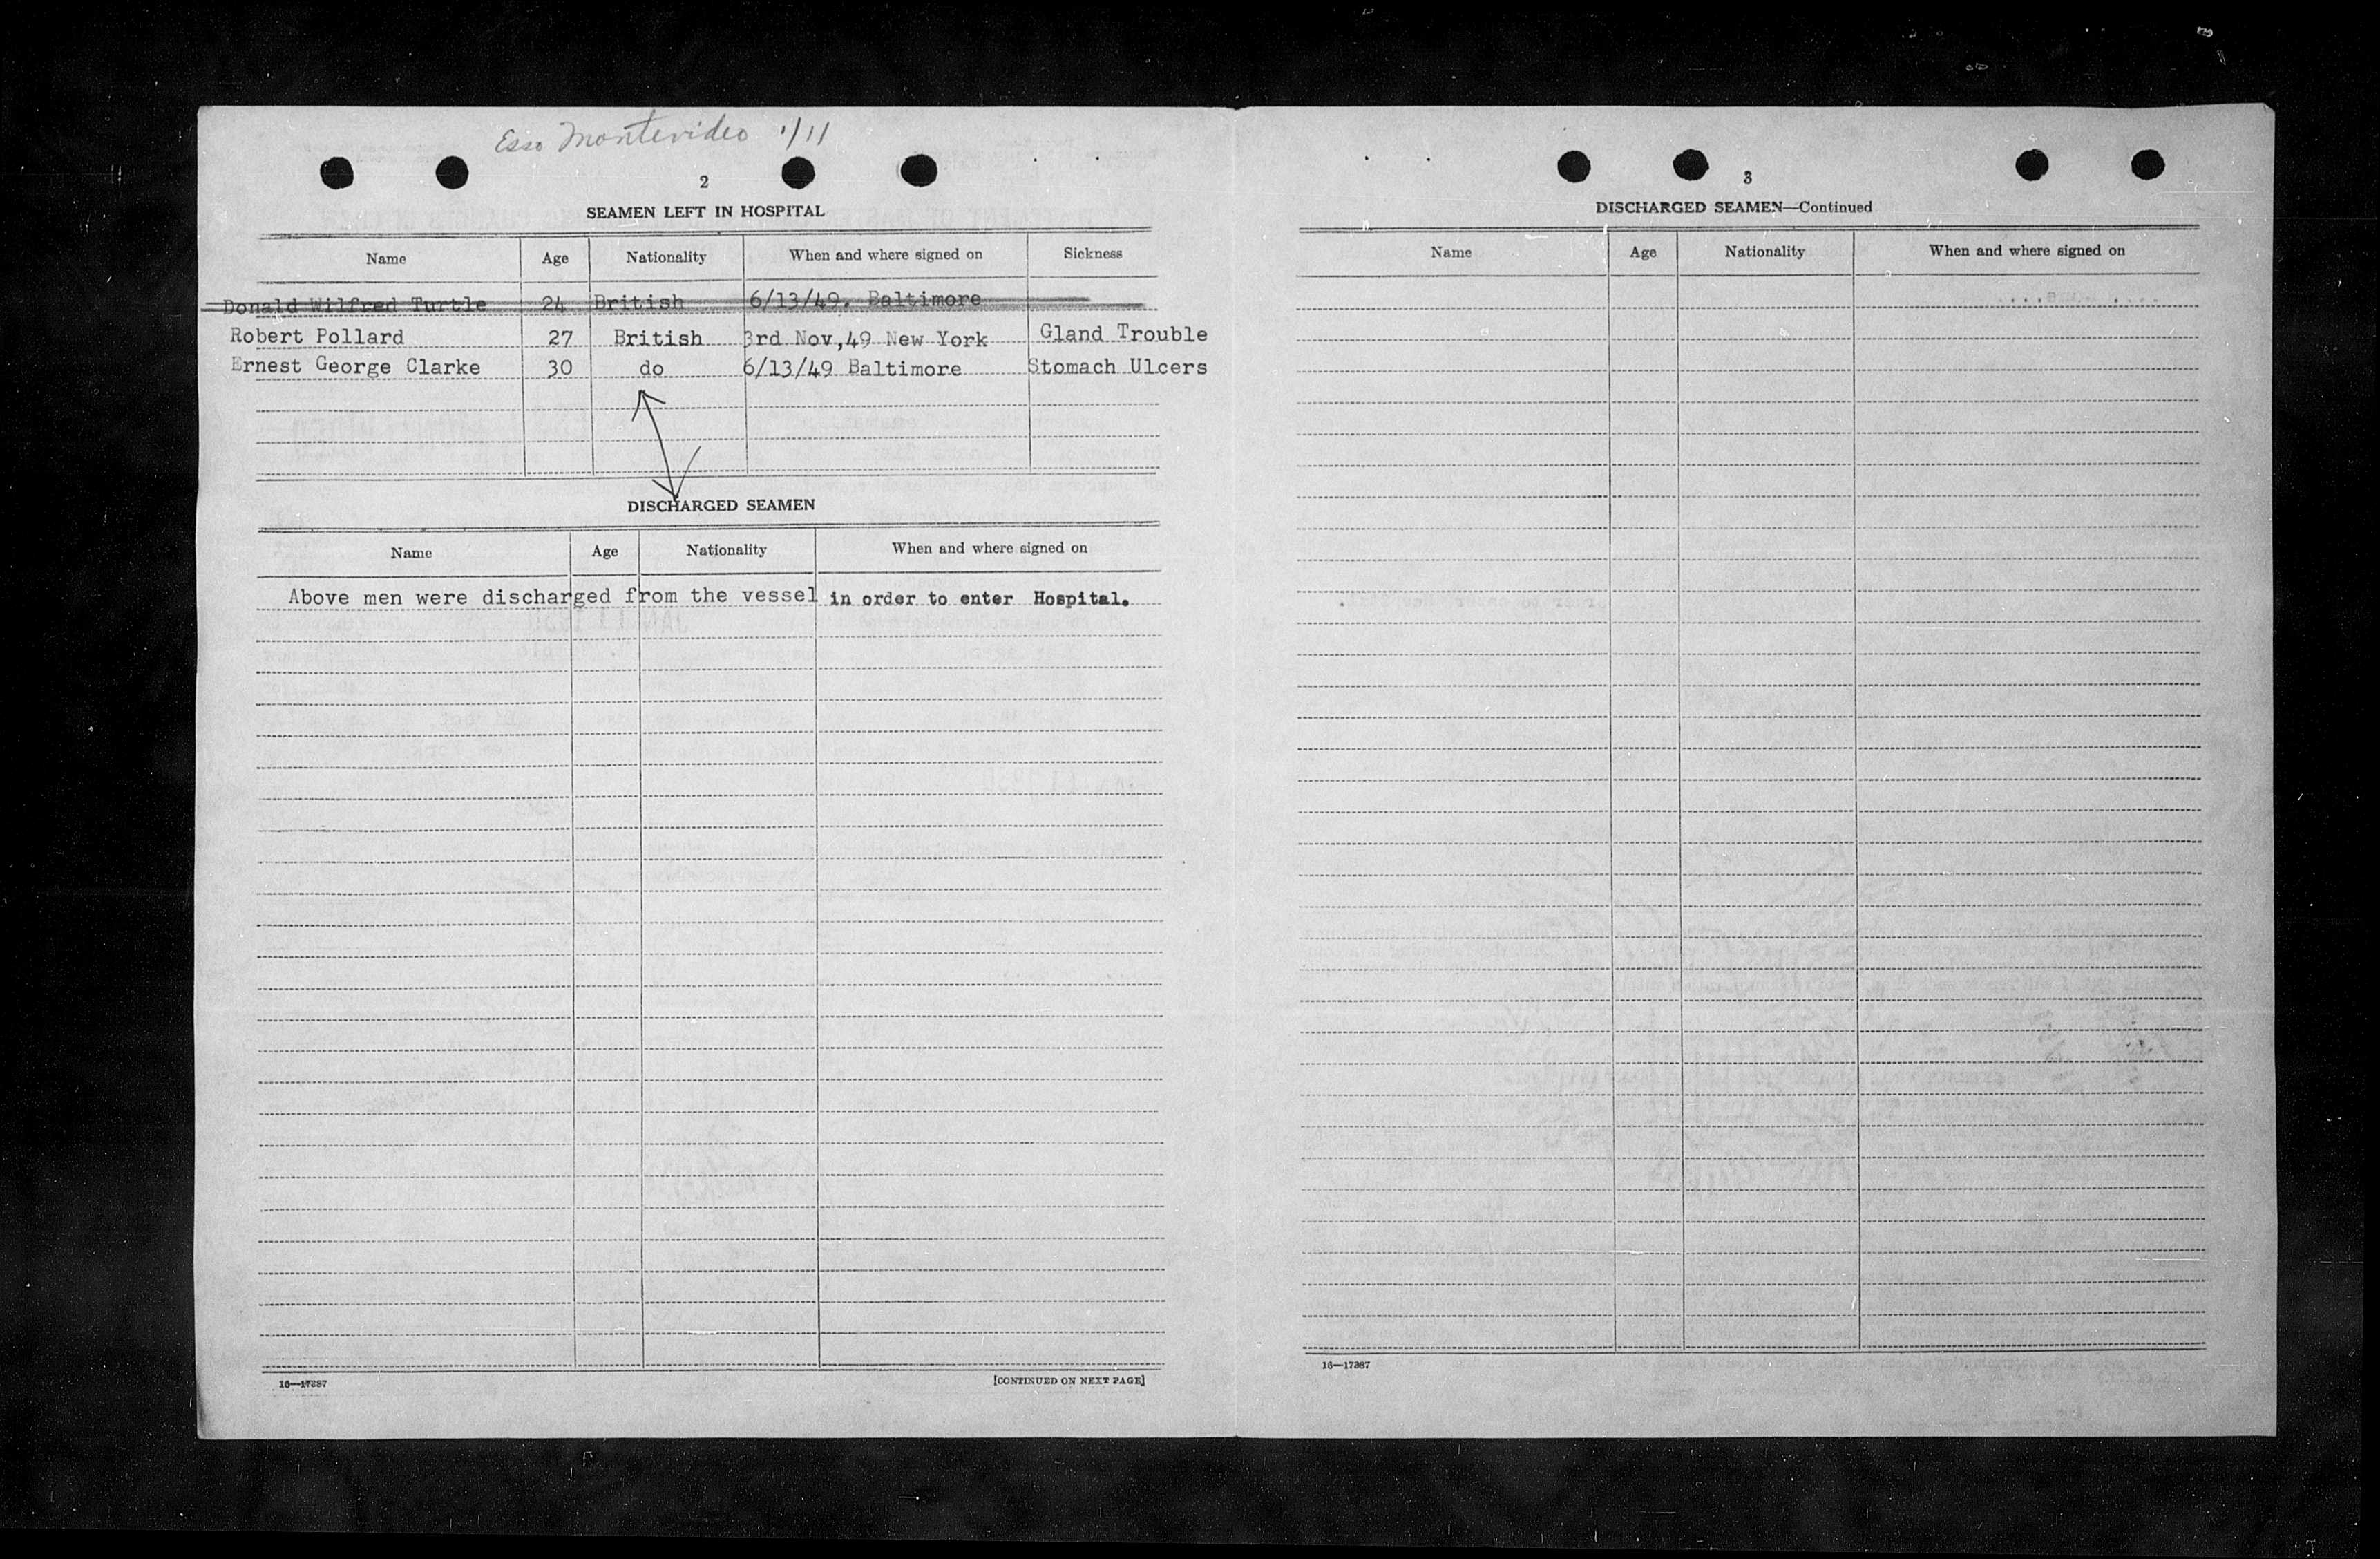 Esso Montevideo 1/11
2
SEAMEN LEFT IN HOSPITAL
Name Age Nationality When and where signed on Sickness
Donald Wilfred Turtle 24 British 6/13/49. Baltimore
Robert Pollard 27 British 3rd Nov,49 New York Gland Trouble
Ernest George Clarke 30 do 6/13/49 Baltimore Stomach Ulcers
DISCHARGED SEAMEN
Name Age Nationality When and where signed on
Above men were discharged from the vessel in order to enter Hospital.
16—17387
[CONTINUED ON NEXT PAGE]
3
DISCHARGED SEAMEN—Continued
Name Age Nationality When and where signed on
16—17387